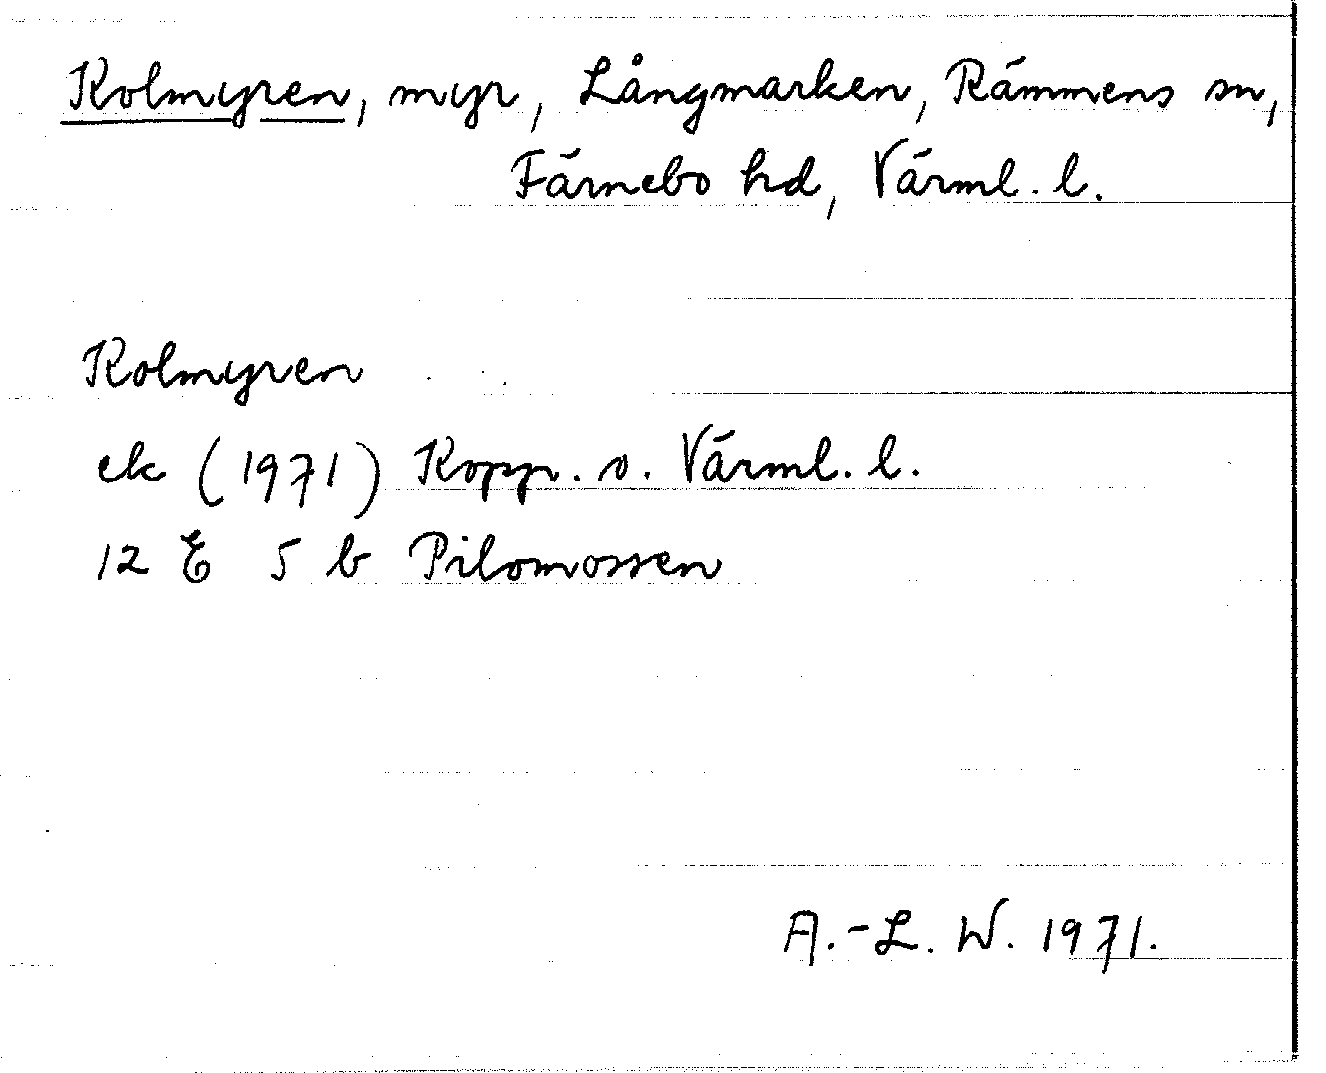 Kolmyren, myr, Långmarken, Rämmens sn,
Färnebo hd, Värml. l.
Kolmyren
ek (1971) Kopp. o. Värml. l.
12 E 5 b Pilomossen
A.-L. W. 1971.